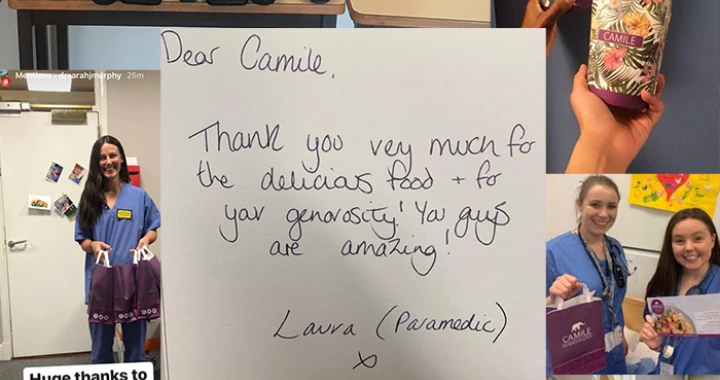 Mentions · drsarahjmurphy 25m
Huge thanks to
Dear Camile,
Thank you very much for
the delicious food + for
your genorosity! You guys
are amazing!
Laura (Paramedic)
x
CAMILE
CAMILE